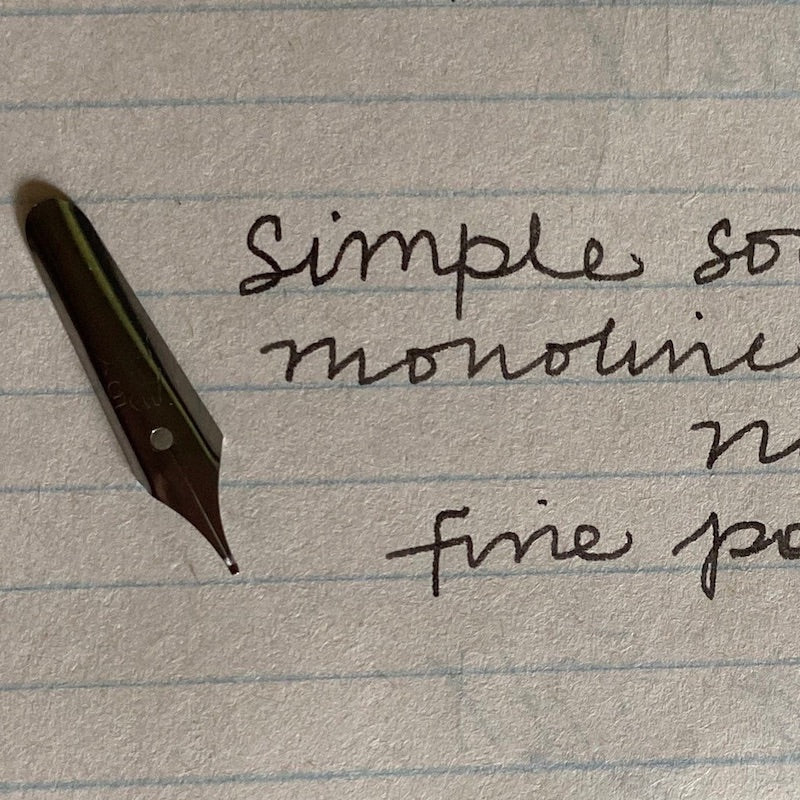 Simple so
monoline
n
fine po